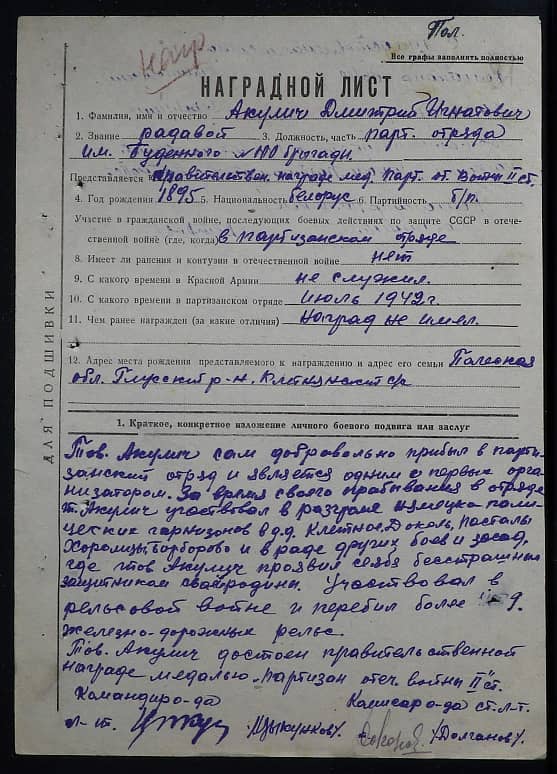 Пол.
нагр
Все графы заполнять полностью
НАГРАДНОЙ ЛИСТ
1. Фамилия, имя и отчество Акулич Дмитрий Игнатович
2. Звание радавой 3. Должность, часть парт. отряда
им. Буденного № 100 бригады.
Представляется к правительствен. награде мед. Парт. от. Войны II ст.
4. Год рождения 1895 5. Национальность белорус 6. Партийность б/п.
Участие в гражданской войне, последующих боевых действиях по защите СССР в отече-
ственной войне (где, когда) в партизанском отряде
8. Имеет ли ранения и контузии в отечественной войне нет
9. С какого времени в Красной Армии не служил.
10. С какого времени в партизанском отряде июль 1942 г.
11. Чем ранее награжден (за какие отличия) наград не имел.
12. Адрес места рождения представляемого к награждению и адрес его семьи Полесская
обл. Глусский р-н. Клетнянский с/с
ДЛЯ ПОДШИВКИ
1. Краткое, конкретное изложение личного боевого подвига или заслуг
Тов. Акулич сам добровольно прибыл в парти-
занский отряд и является одним с первых орга-
низатором. За время своего прабывания в отряде
т. Акулич участвовал в разгроме немецко поли-
цетских гарнизонов в д.д. Клетное, Доколь, Косталы
Хоромцы, Барборово и в раде других боев и засад,
где тов Акулич проявил себя бесстрашным
защитником свайродины. Участвовал в
рельсовой войне и перебил более 9.
железно-дорожных рельс.
Тов. Акулич достоен правительственной
награде медалью "Партизан отеч войны II" ст.
Командир о-да Комисар о-да ст. л-т.
л-т. /Цыкунков/. /Долганов/.